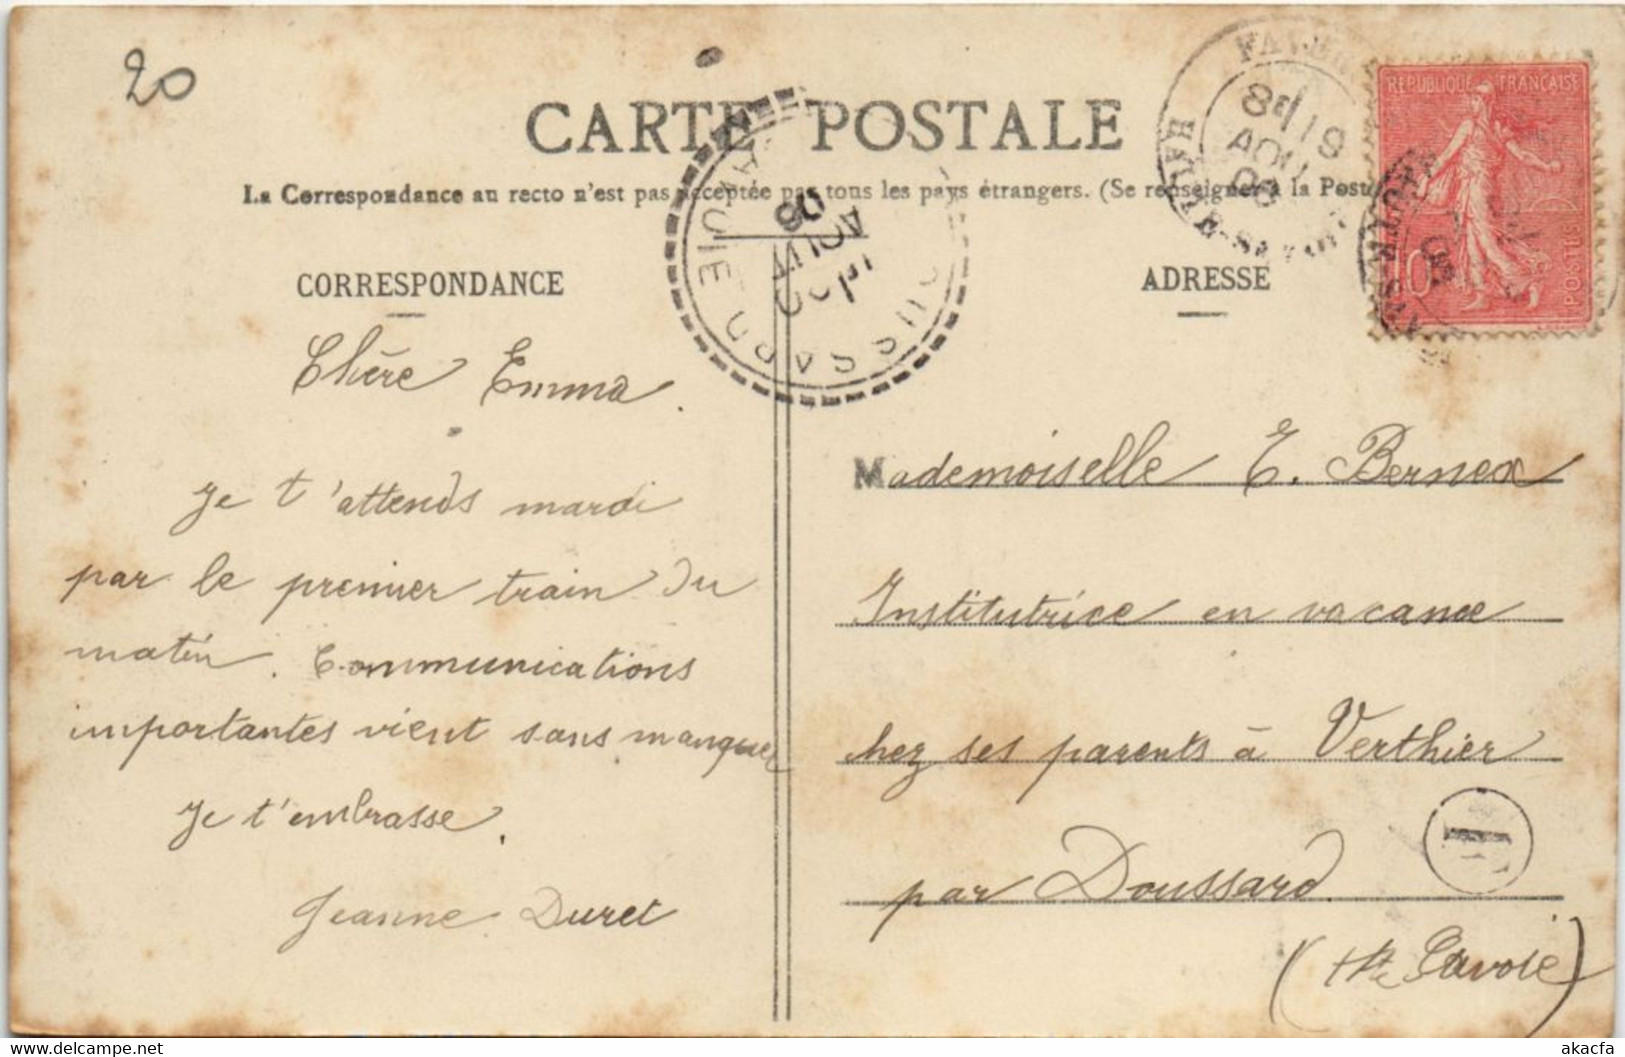 20
CARTE POSTALE
La Correspondance au recto n'est pas acceptée par tous les pays étrangers. (Se renseigner à la Poste
CORRESPONDANCE
Chère Emma.
Je t'attends mardi
par le premier train du
matin. Communications
importantes vient sans manquer
Je t'embrasse.
Jeanne Duret
ADRESSE
Mademoiselle E. Bernex
Institutrice en vacance
chez ses parents à Verthier
par Doussard.
(Hte Savoie)
REPUBLIQUE FRANÇAISE
POSTES
10
DOUSSARD
AOUT
06
8E 19
AOUT
06
HAUTE-SAVOIE
akacfa